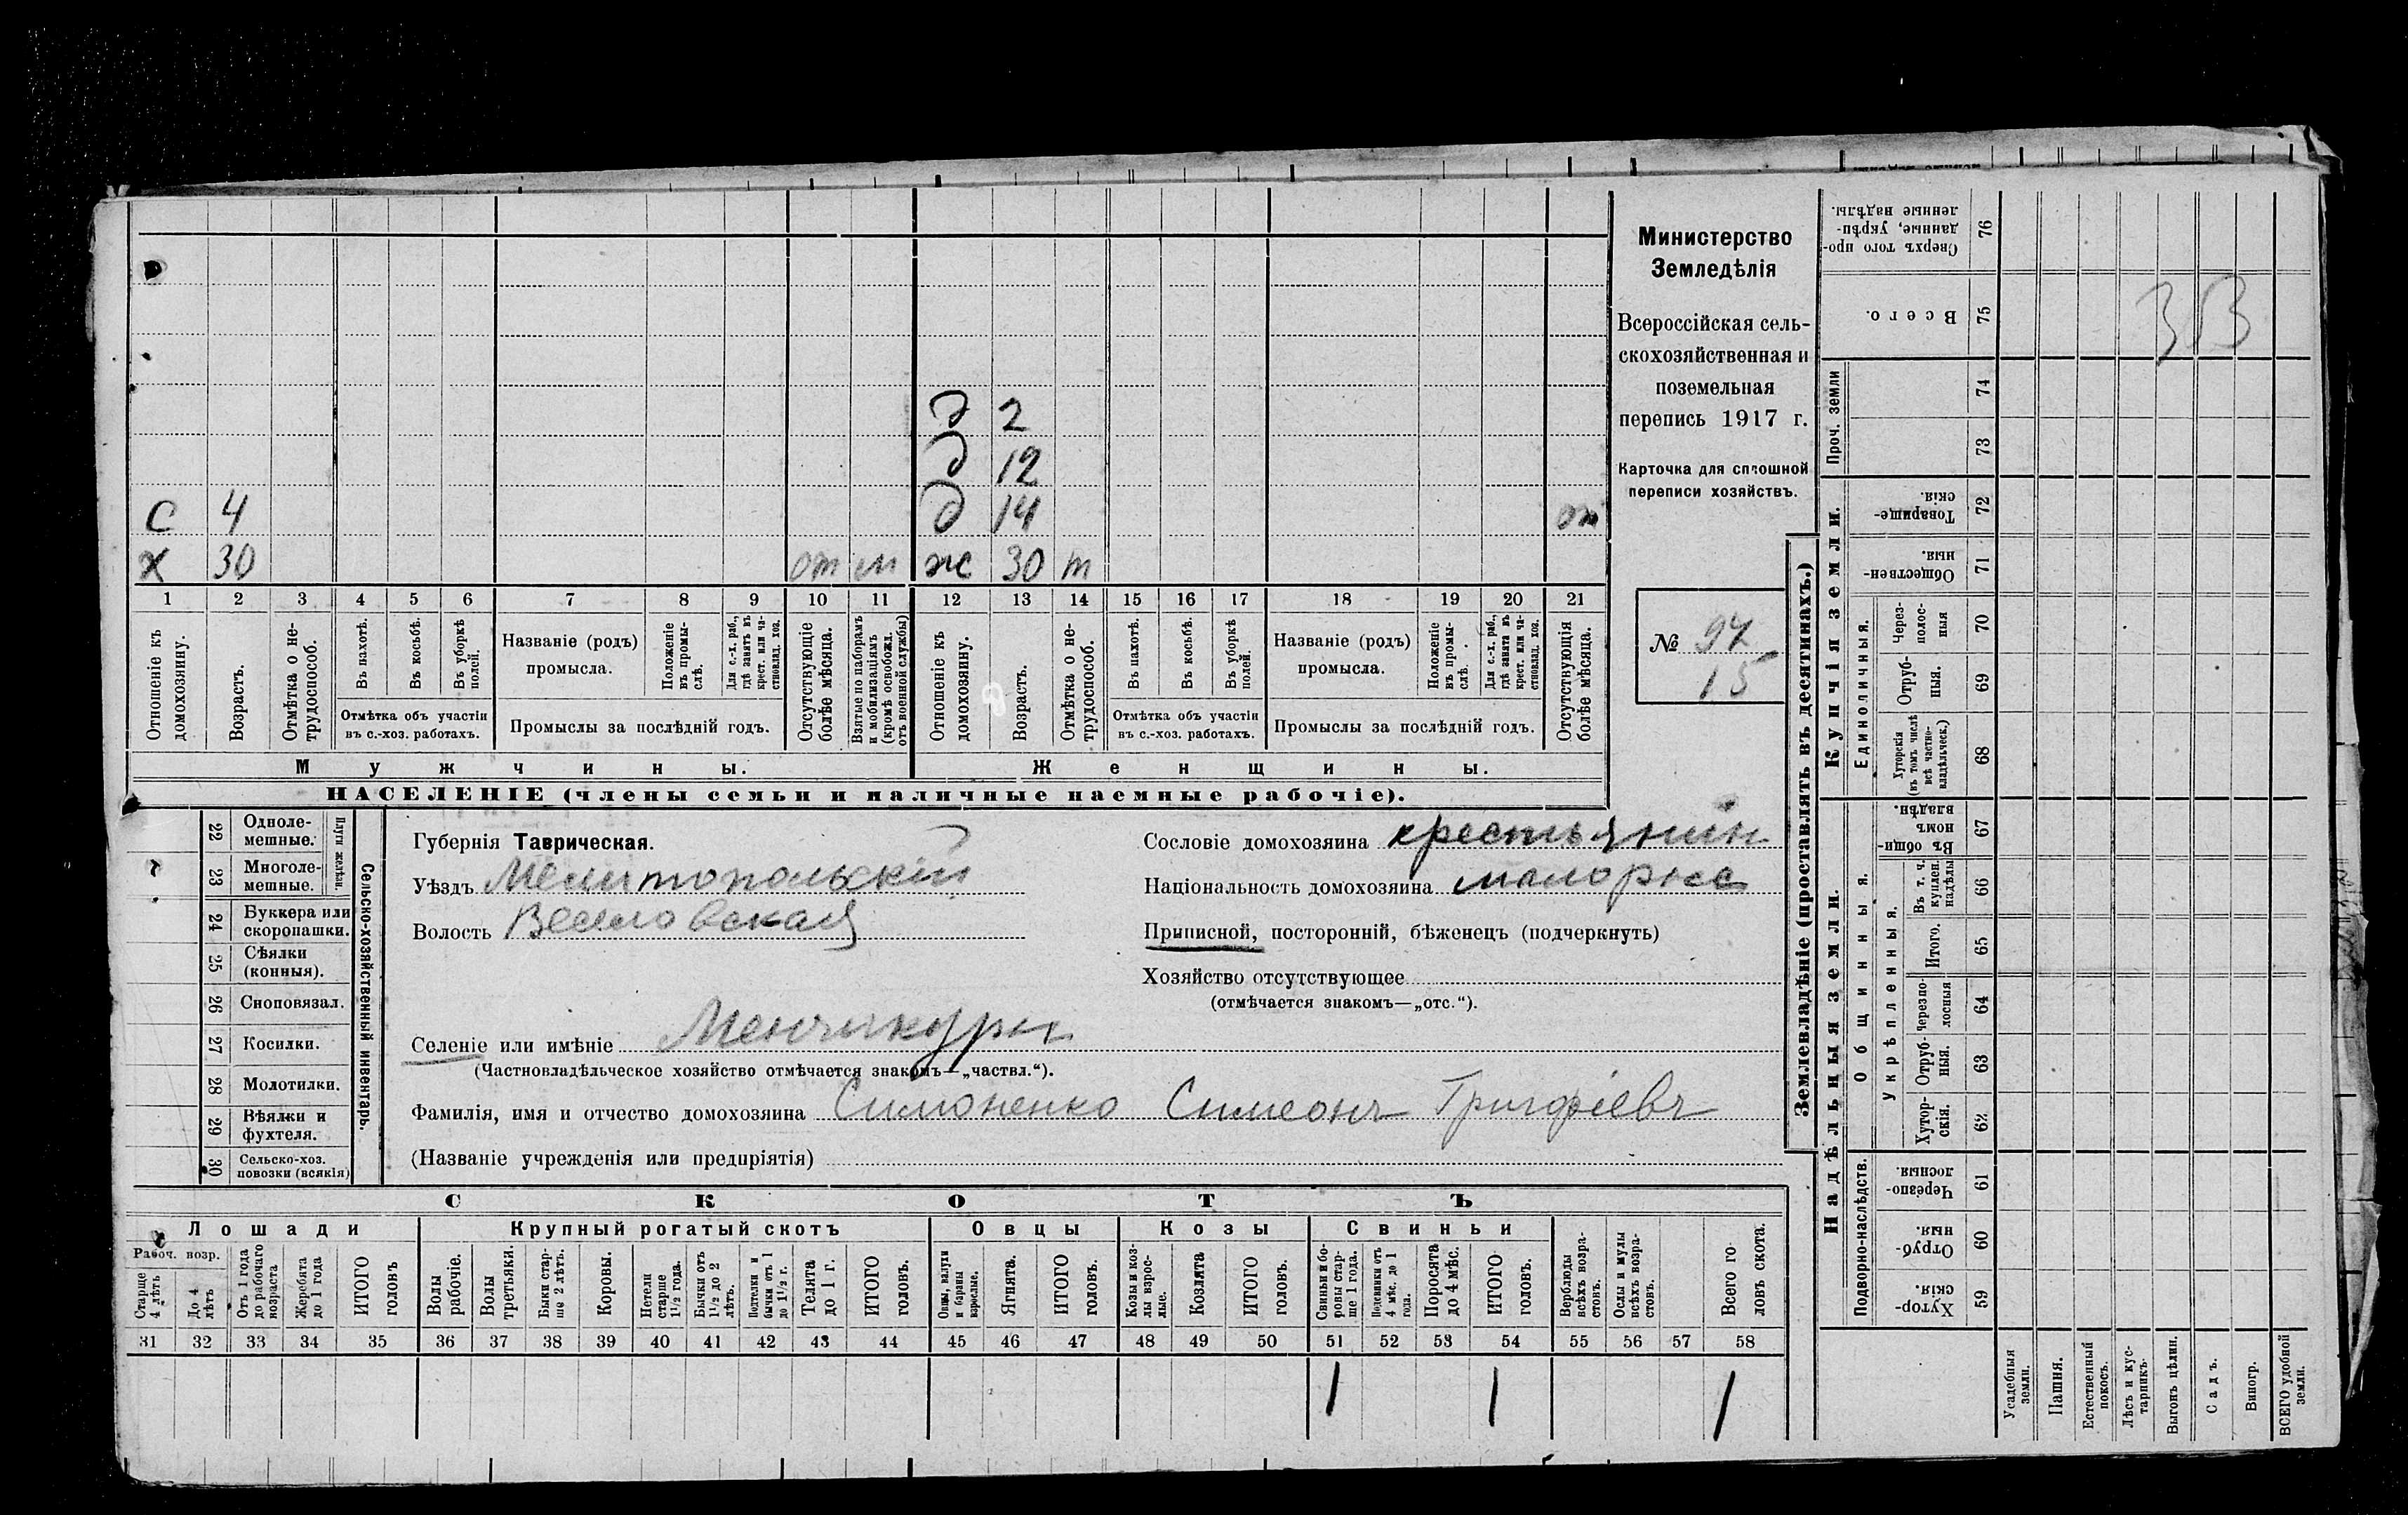 Министерство
Земледѣлія
Всероссійская сель-
скохозяйственная и
поземельная
перепись 1917 г.
Карточка для сплошной
переписи хозяйствъ.
№ 97
15
д 2
д 12
с 4 д 14 от
х 30 от м ж 30 т
1 2 3 4 5 6 7 8 9 10 11 12 13 14 15 16 17 18 19 20 21
Отношеніе къ домохозяину.
Возрастъ.
Отмѣтка о не-трудоспособ.
Въ пахотѣ.
Въ косьбѣ.
Въ уборкѣ полей.
Отмѣтка объ участіи
въ с.-хоз. работахъ.
Названіе (родъ)
промысла.
Положеніе въ промы-слѣ.
Для с.-х. раб., гдѣ занятъ въ крест. или ча-стновлад. хоз.
Промыслы за послѣдній годъ.
Отсутствующіе болѣе мѣсяца.
Взятые по наборамъ и мобилизаціямъ (кромѣ освобожд. отъ военной службы)
Отношеніе къ домохозяину.
Возрастъ.
Отмѣтка о не-трудоспособ.
Въ пахотѣ.
Въ косьбѣ.
Въ уборкѣ полей.
Отмѣтка объ участіи
въ с.-хоз. работахъ.
Названіе (родъ)
промысла.
Положеніе въ промы-слѣ.
Для с.-х. раб., гдѣ занята въ крест. или ча-стновлад. хоз.
Промыслы за послѣдній годъ.
Отсутствующія болѣе мѣсяца.
Мужчины. Женщины.
НАСЕЛЕНІЕ (члены семьи и наличные наемные рабочіе).
22 Одноле-мешные.
23 Многоле-мешные.
Плуги желѣзн.
24 Буккера или скоропашки.
25 Сѣялки (конныя).
26 Сноповязал.
27 Косилки.
28 Молотилки.
29 Вѣялки и фухтеля.
30 Сельско-хоз. повозки (всякія)
Сельско-хозяйственный инвентарь.
Губернія Таврическая.
Уѣздъ Мелитопольскій
Волость Веселовская
Сословіе домохозяина крестьянин
Національность домохозяина малорос
Приписной, посторонній, бѣженецъ (подчеркнуть)
Хозяйство отсутствующее
(отмѣчается знакомъ—„отс.“).
Селеніе или имѣніе Менчикуры
(Частновладѣльческое хозяйство отмѣчается знакомъ—„частвл.“).
Фамилія, имя и отчество домохозяина Симоненко Симеонъ
(Названіе учрежденія или предпріятія)
СКОТЪ
Лошади Крупный рогатый скотъ Овцы Козы Свиньи
Рабоч. возр.
Старше 4 лѣтъ
До 4 лѣтъ
Отъ 1 года до рабочаго возраста
Жеребята до 1 года
ИТОГО головъ
Волы рабочіе.
Волы третьяки.
Быки стар-ше 2 лѣтъ.
Коровы.
Нетели старше 1½ года.
Бычки отъ 1½ до 2 лѣтъ.
Подтелки и бычки отъ 1 до 1½ г.
Телята до 1 г.
ИТОГО головъ.
Овцы, валухи и бараны взрослые.
Ягнята.
ИТОГО головъ.
Козы и коз-лы взрос-лые.
Козлята
ИТОГО головъ.
Свиньи и бо-ровы стар-ше 1 года.
Подсвинки отъ 4 мѣс. до 1 года.
Поросята до 4 мѣс.
ИТОГО головъ.
Верблюды всѣхъ возра-стовъ.
Ослы и мулы всѣхъ возра-стовъ.
Всего го-ловъ скота.
31 32 33 34 35 36 37 38 39 40 41 42 43 44 45 46 47 48 49 50 51 52 53 54 55 56 57 58
1 1 1
Землевладѣніе (проставлять въ десятинахъ.)
Надѣльныя земли. Купчія земли.
Проч. земли
Подворно-наслѣдств.
Общинныя.
Укрѣпленныя.
Единоличныя.
Сверхъ того про-данные, укрѣп-ленные надѣлы. 76
Всего. 75
74
73
Товарище-скія. 72
Обществен-ныя. 71
Через-полос-ныя 70
Отруб-ныя. 69
Хуторскія (въ томъ числѣ всѣ частно-владѣльческ.) 68
Въ общин-номъ владѣн. 67
Въ т. ч. куплен. надѣлы 66
Итого. 65
Черезпо-лосныя 64
Отруб-ныя. 63
Хутор-скія. 62
Черезпо-лосныя. 61
Отруб-ныя. 60
Хутор-скія. 59
Усадебныя земли.
Пашня.
Естественный покосъ.
Лѣсъ и кус-тарникъ.
Выгонъ цѣлин.
Садъ.
Виногр.
ВСЕГО удобной земли.